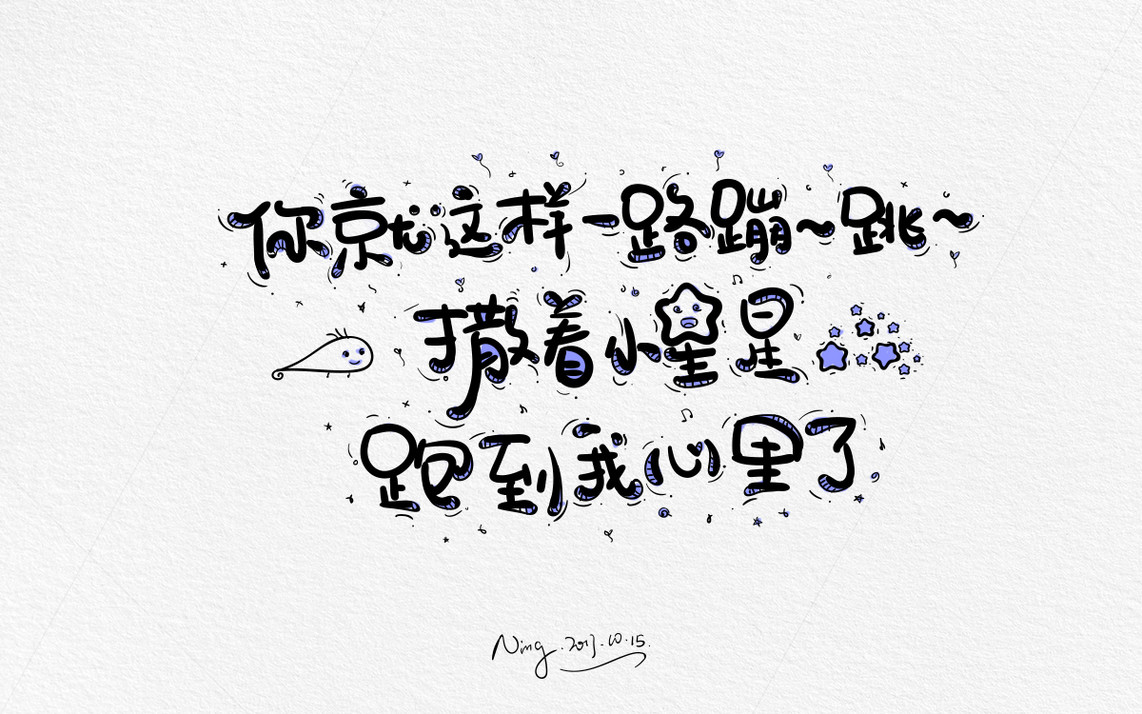 你就这样一路蹦~跳~
撒着小星星
跑到我心里了
Ning.2013.10.15.